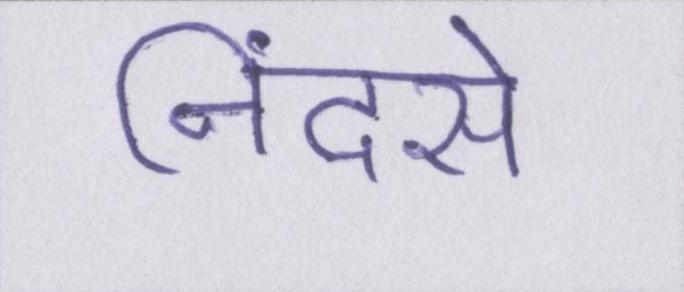 निंदसे